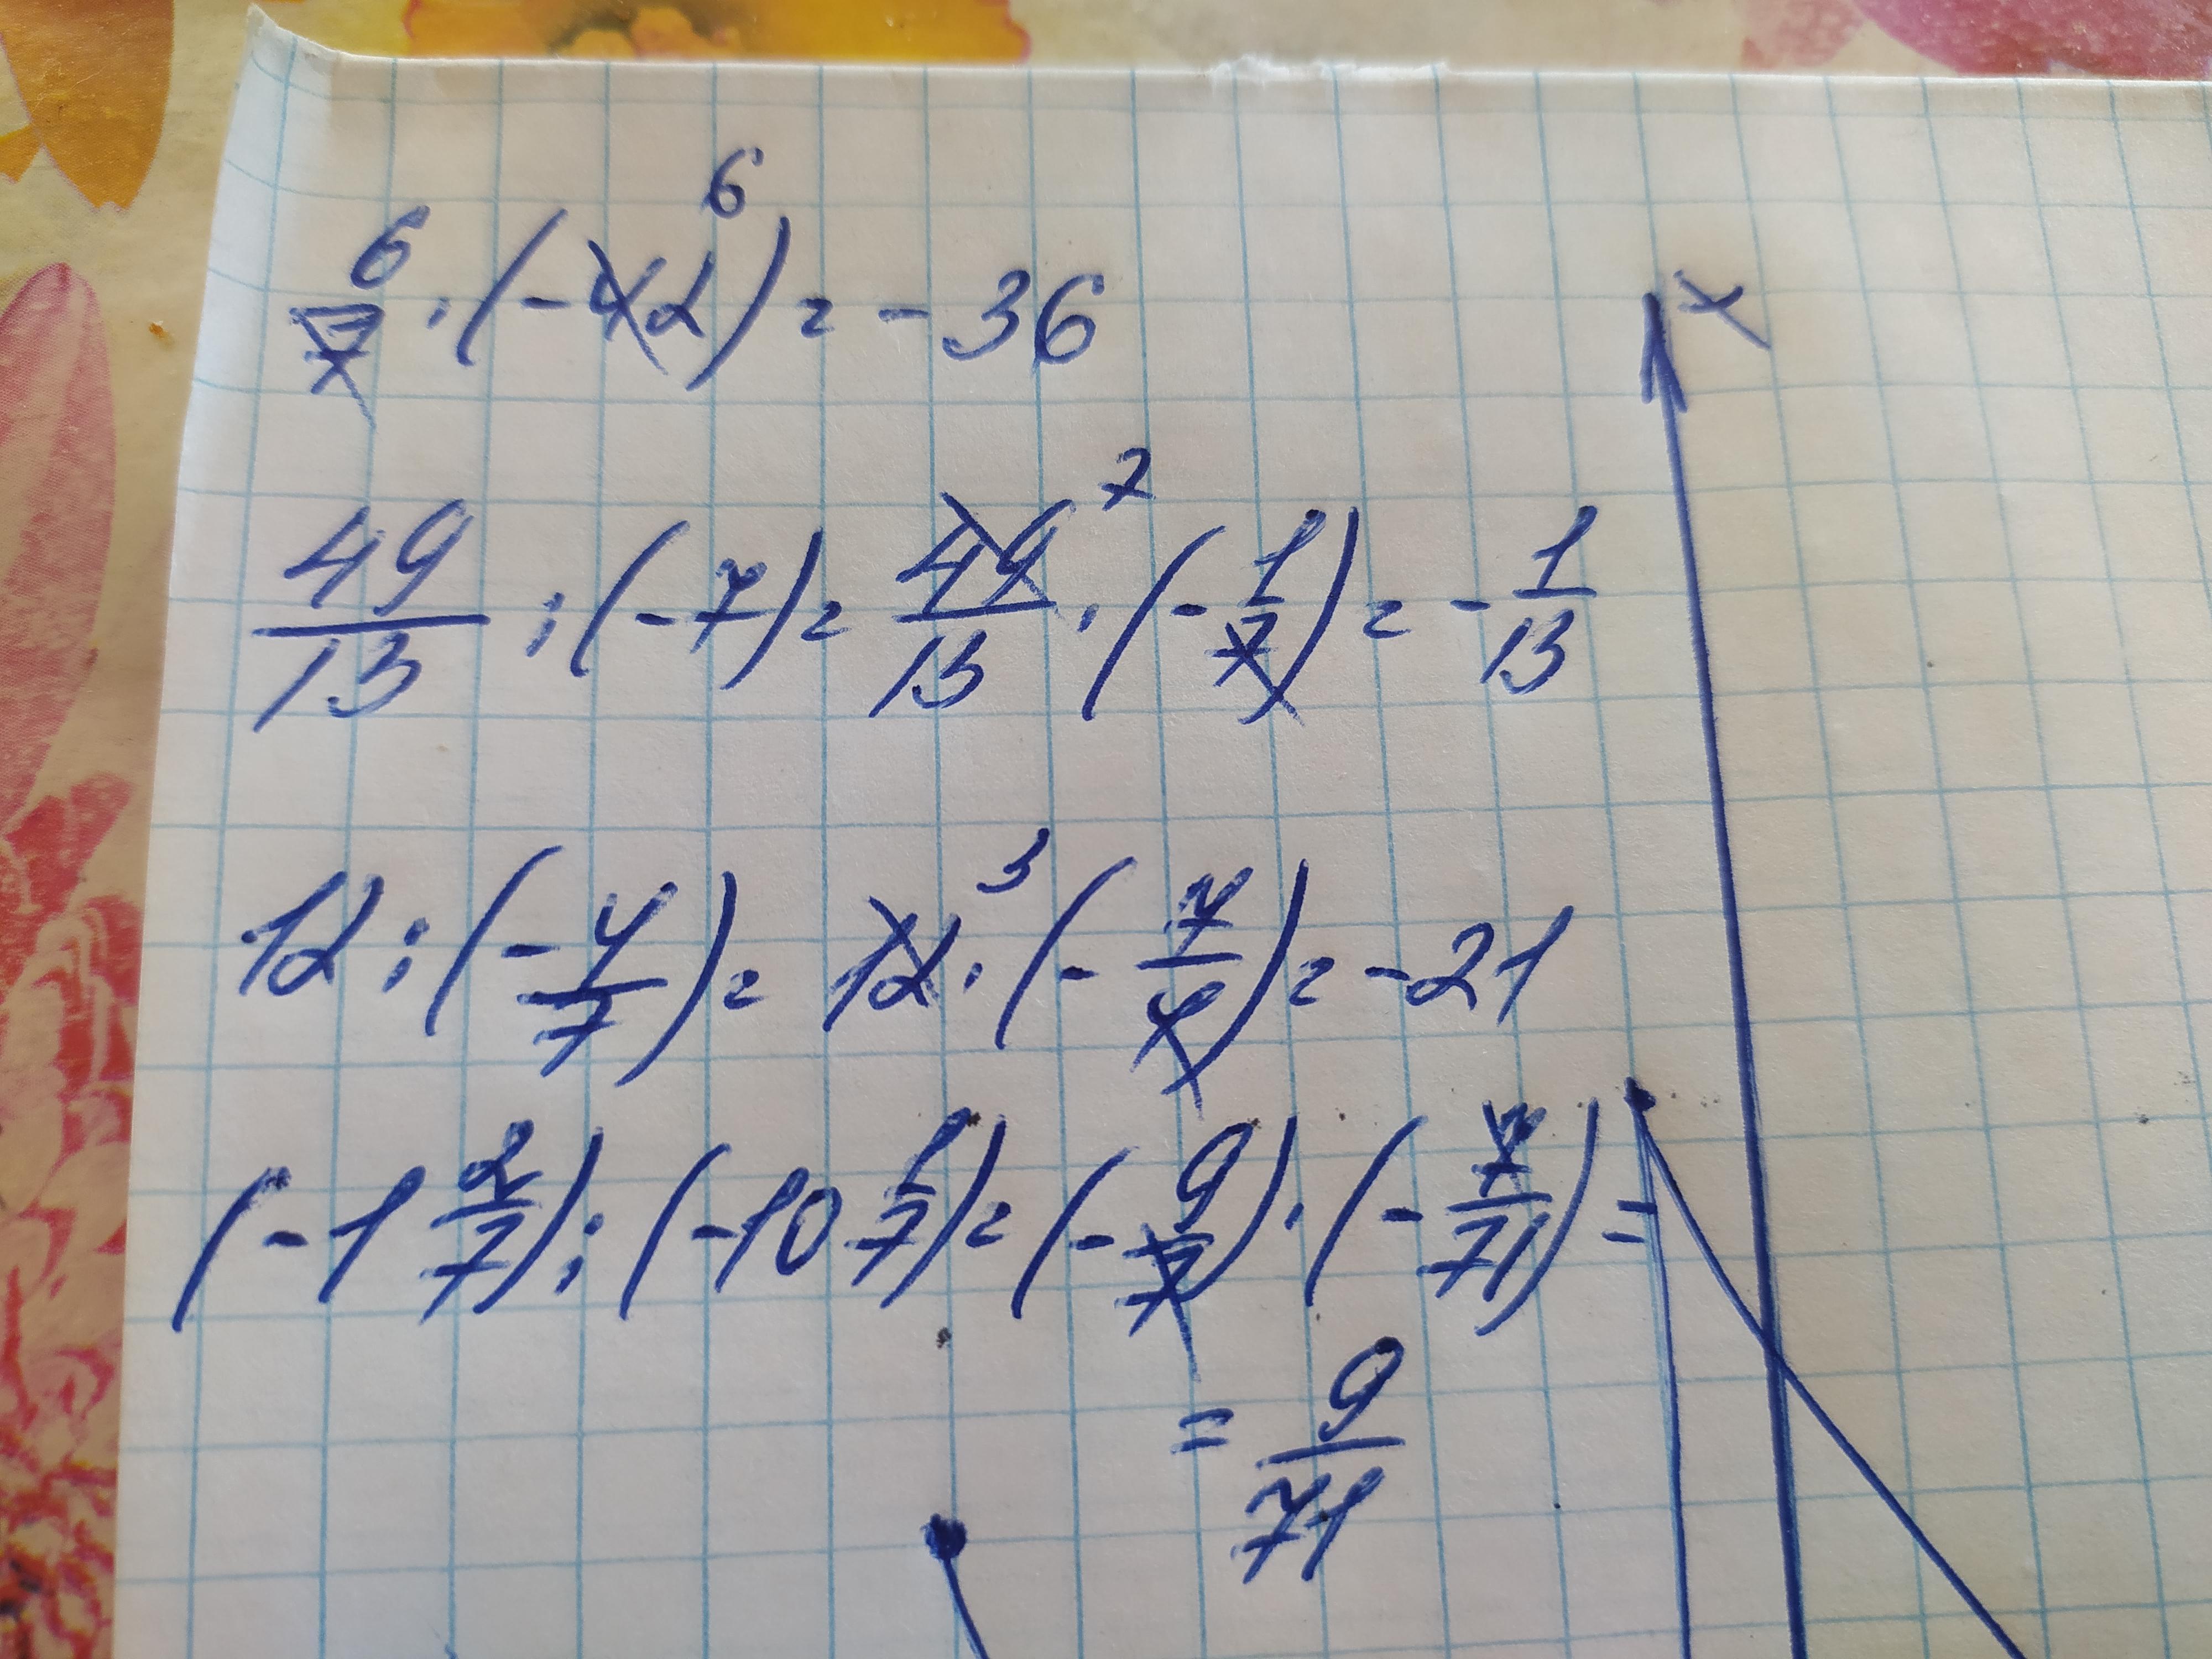 6/7 · (-42) 6 = -36
49/13 : (-7) = 49/13 7 · (-1/7) = -1/13
12 : (-4/7) = 12 3 · (-7/4) = -21
(-1 2/7) : (-10 1/7) = (-9/7) · (-7/71) =
= 9/71
x